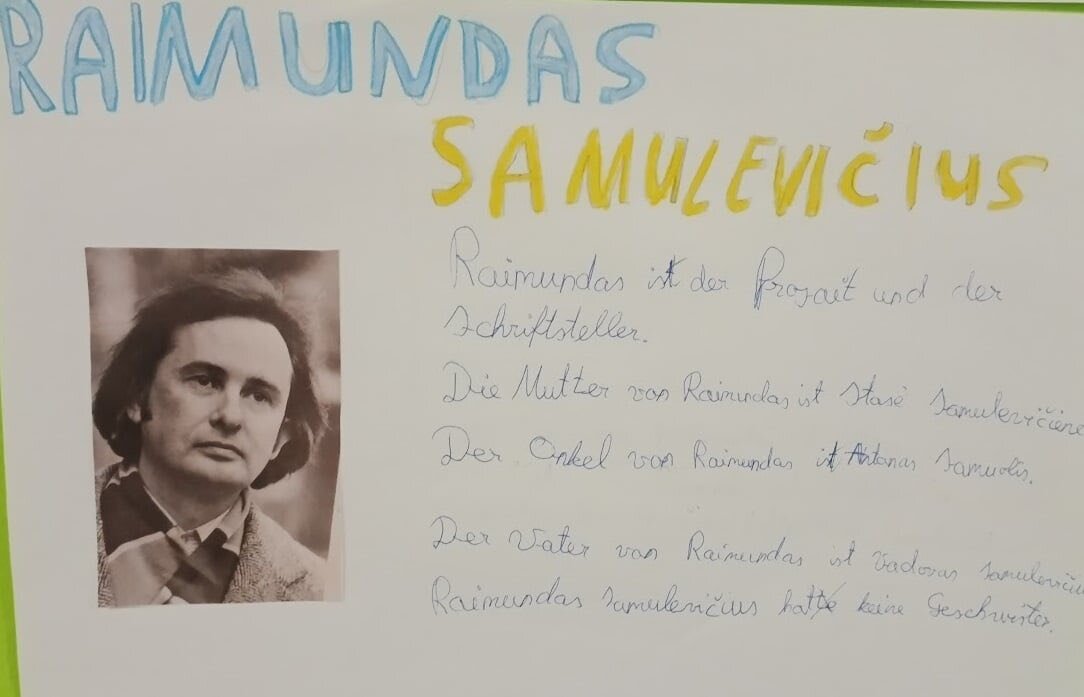 RAIMUNDAS
SAMULEVIČIUS
Raimundas ist der Prozait und der
Schriftsteller.
Die Mutter von Raimundas ist Stasė Samulevičienė
Der Onkel von Raimundas ist Antanas Samuolis.
Der Vater von Raimundas ist Vadovas Samulevičius
Raimundas Samulevičius hat keine Geschwister.